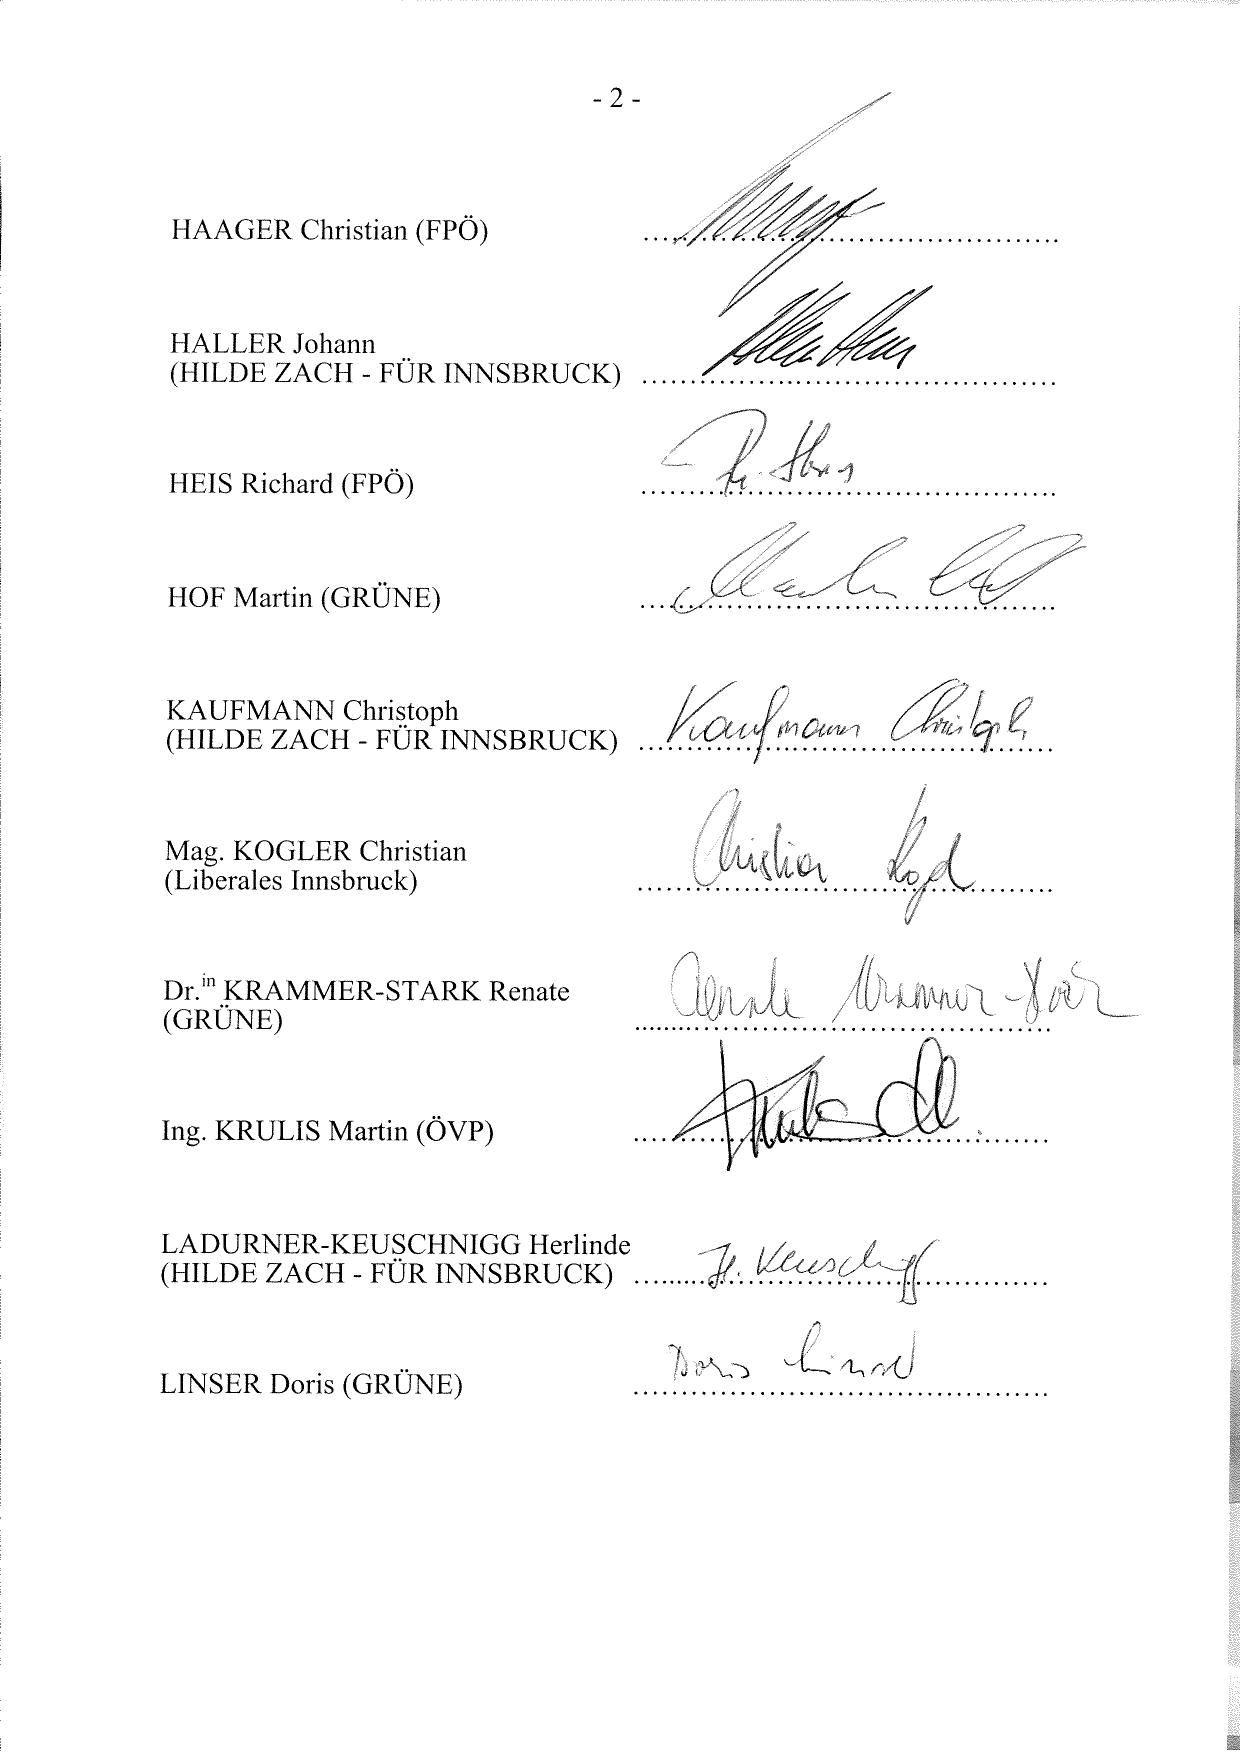 - 2 -
HAAGER Christian (FPÖ) ........................................
HALLER Johann
(HILDE ZACH - FÜR INNSBRUCK) ........................................
HEIS Richard (FPÖ) ........................................
HOF Martin (GRÜNE) ........................................
KAUFMANN Christoph
(HILDE ZACH - FÜR INNSBRUCK) Kaufmann Christoph
Mag. KOGLER Christian
(Liberales Innsbruck) Christian
Dr.in KRAMMER-STARK Renate
(GRÜNE) Renate Krammer-
Ing. KRULIS Martin (ÖVP) ........................................
LADURNER-KEUSCHNIGG Herlinde
(HILDE ZACH - FÜR INNSBRUCK) H. Keuschnigg
LINSER Doris (GRÜNE) Doris Linser